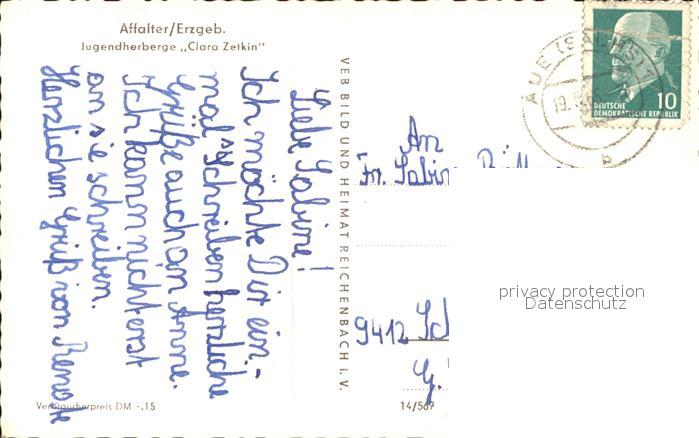 Affalter/Erzgeb.
Jugendherberge „Clara Zetkin"
Liebe Sabine!
Ich möchte Dir ein-
mal schreiben herzliche
Grüße auch an Anne.
Ich kann nicht erst
an sie schreiben.
Herzlichen Gruß von Renate
Verbraucherpreis DM -,15
VEB BILD UND HEIMAT REICHENBACH i. V.
14/567
AUE (SACHS)
19.
DEUTSCHE
DEMOKRATISCHE REPUBLIK
10
An
Fr. Sabine
9412 Sch
G.
privacy protection
Datenschutz